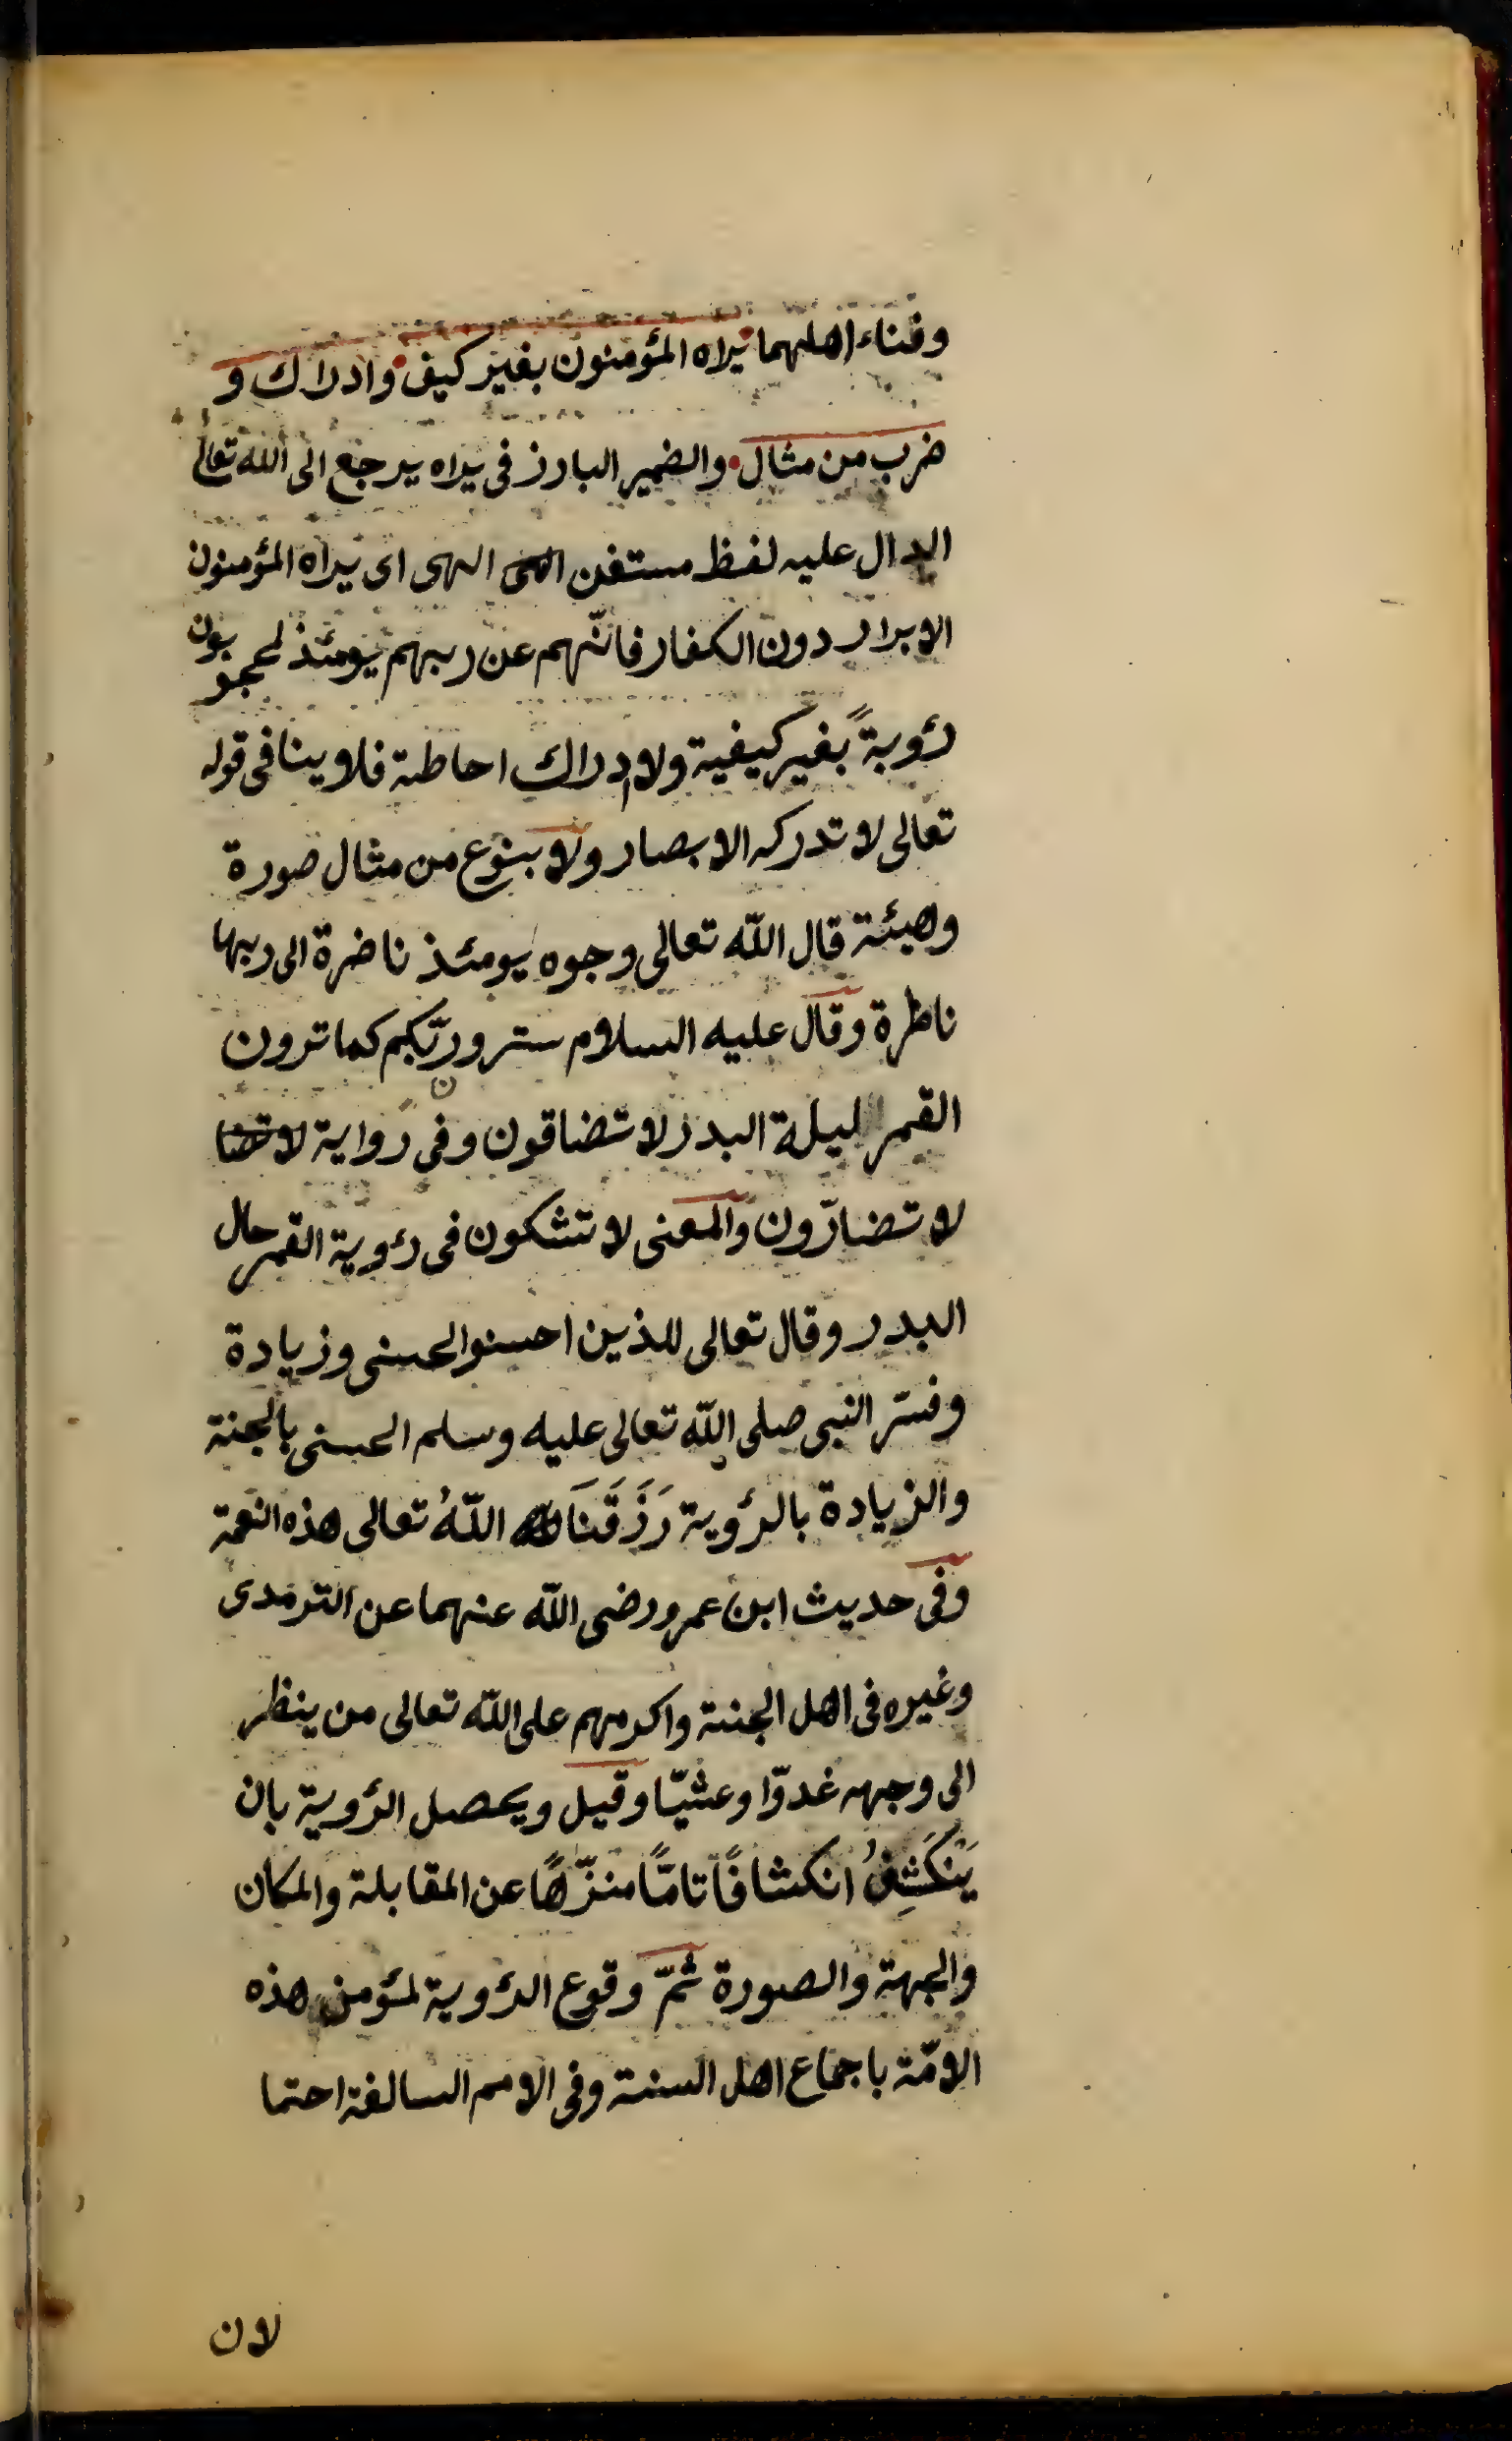 وفناء اهلهما يراه المؤمنون بغير كيف وادراك و
ضرب من مثال والضمير البارز فى يراه يرجع الى الله تعالى
الدال عليه لفظ مستغن الهى اى يراه المؤمنون
الابرار دون الكفار فانّهم عن ربهم يومئذ لمحجوبون
رؤيةً بغير كيفية ولا ادراك احاطة فلا ينافى قوله
تعالى لا تدركه الابصار ولا بنوع من مثال صورة
وهيئة قال الله تعالى وجوه يومئذ ناضرة الى ربها
ناظرة وقال عليه السلام سترون ربّكم كما ترون
القمر ليلة البدر لا تضاقون وفى رواية لا تضا
لا تضارّون والمعنى لا تشكون فى رؤية القمر حال
البدر وقال تعالى للذين احسنوا الحسنى وزيادة
وفسّر النبى صلى الله تعالى عليه وسلم الحسنى بالجنة
والزيادة بالرؤية رَزَقَنَا اللّهُ تعالى هذه النعمة
وفى حديث ابن عمرو رضى الله عنهما عن الترمدى
وغيره فى اهل الجنة واكرمهم على الله تعالى من ينظر
الى وجهه غدوّا وعشيّا وقيل ويحصل الرؤية بان
يَنْكَشِفُ انكشافًا تامًّا منزّهًا عن المقابلة والمكان
والجهة والصورة ثمّ وقوع الرؤية لمؤمن هذه
الامّة باجماع اهل السنة وفى الامم السالفة احتما
لان